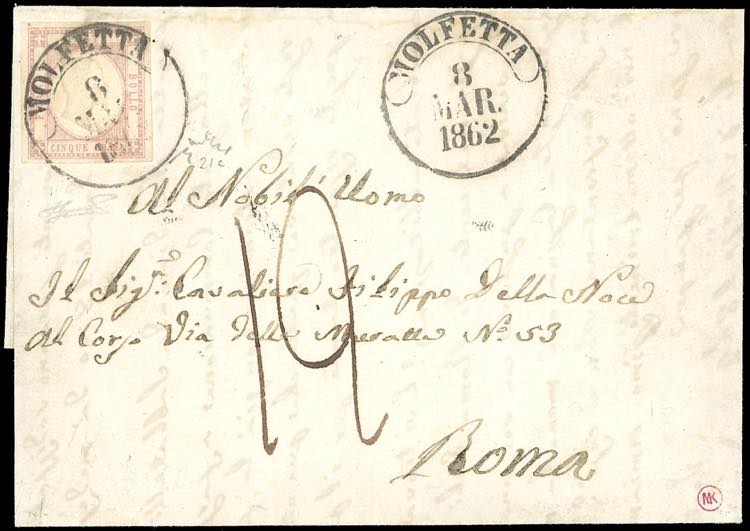 MOLFETTA
8
MAR.
BOLLO
CINQUE
MOLFETTA
8
MAR.
1862
21c
Al Nobil' Uomo
Il Sigr. Cavaliere Filippo Della Noce
Al Corso Via delle Muratte N.º 53
19
Roma
NK